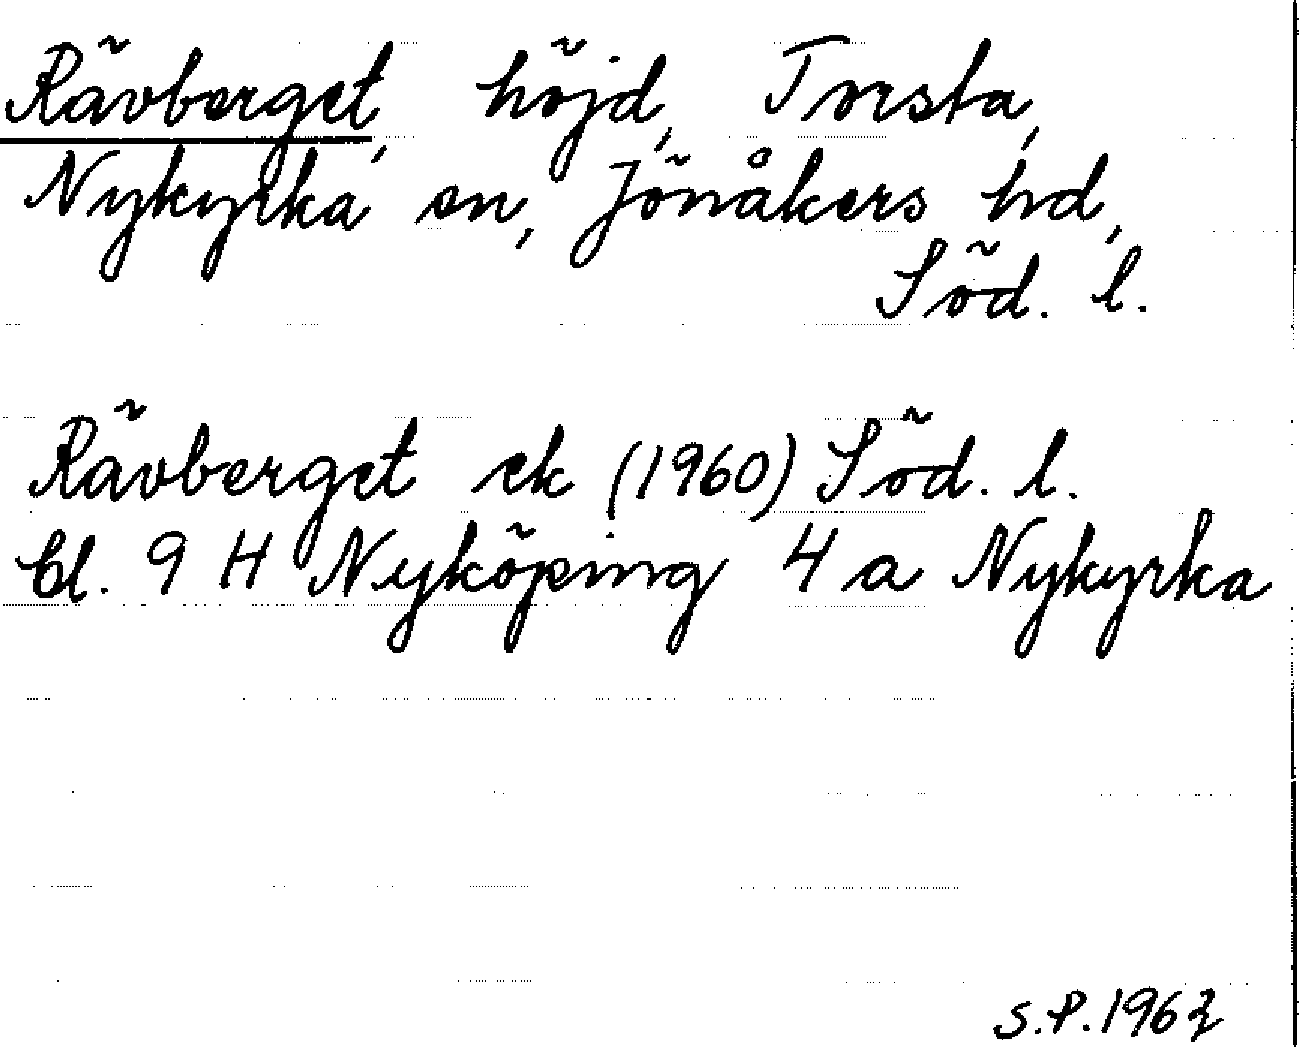 Rävberget, höjd, Torsta,
Nykyrka sn, Jönåkers hd,
Söd. l.
Rävberget ek (1960) Söd. l.
Bl. 9 H Nyköping 4 a Nykyrka
S.P. 1962